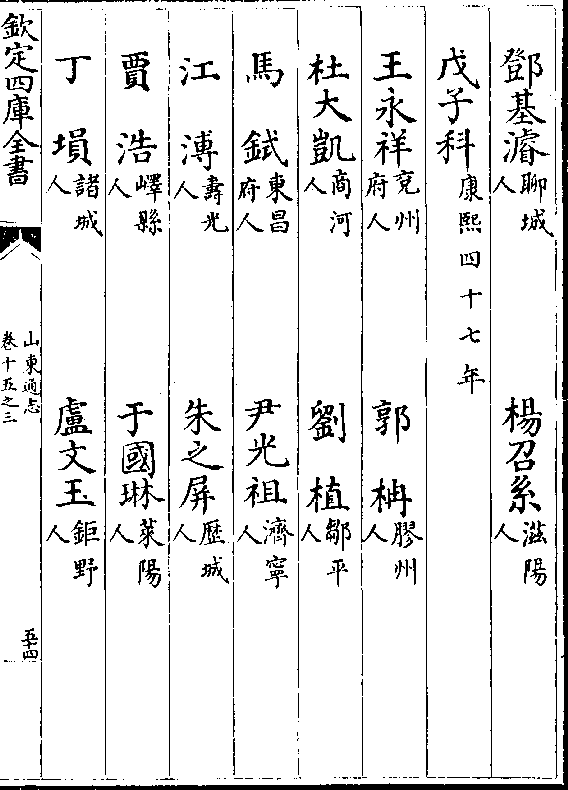 鄧基濬聊城人　楊召系滋陽人
戊子科康熙四十七年
王永祥兗州府人　郭柟膠州人
杜大凱商河人　劉植鄒平人
馬鉽東昌府人　尹光祖濟寧人
江漙壽光人　朱之屏歴城人
賈浩嶧縣人　于國琳萊陽人
丁塤諸城人　盧文玉鉅野人
欽定四庫全書
山東通志
卷十五之三
五十四